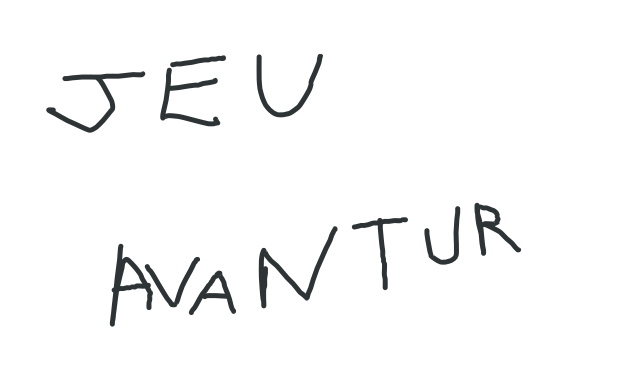 JEU
AVANTUR